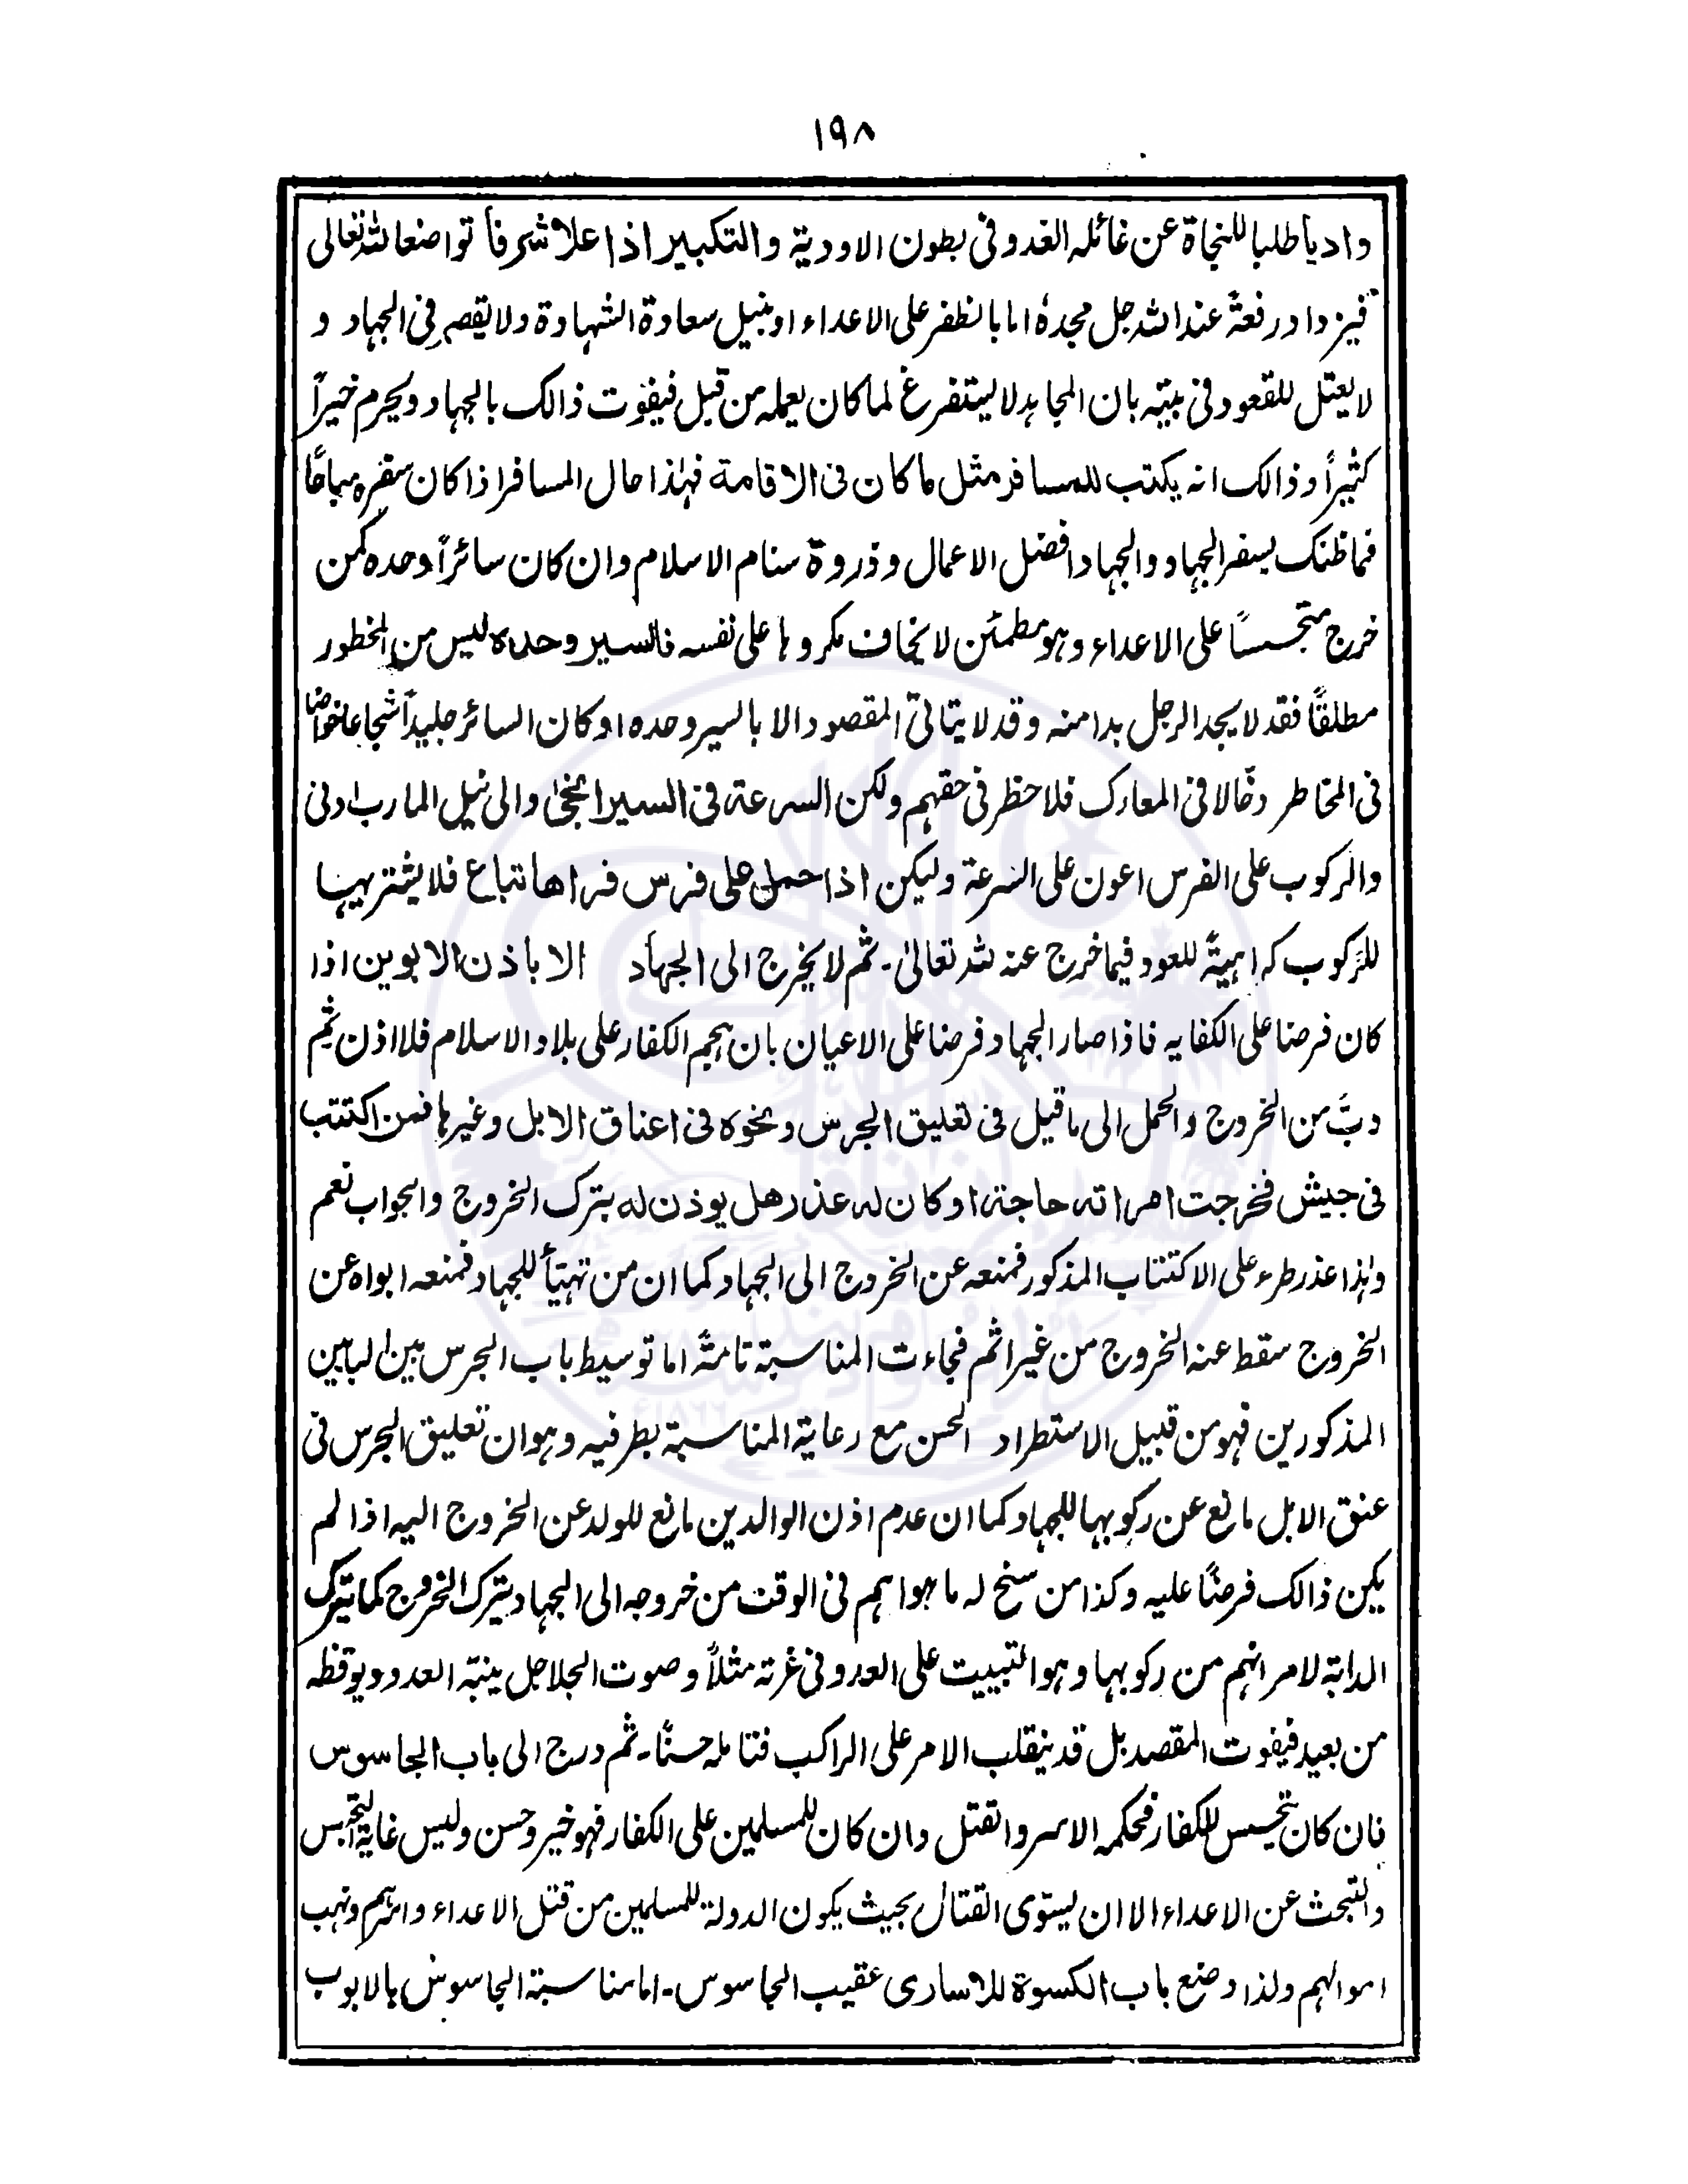 ١٩٨
وادياً طلبا للنجاة عن غائلہ الغدو فی بطون الاودیۃ والتکبیر اذا علا شرفاً تواضعا للہ تعالی
فیزداد رفعۃً عند اللہ جل مجدہٗ اما بالظفر علی الاعداء او بنیل سعادۃ الشہادۃ ولا یقصر فی الجہاد و
لا یعتل للقعود فی بیتہ بان المجاہد لا یتفرغ لما کان یعملہ من قبل فیفوت ذالک بالجہاد ویحرم خیراً
کثیراً وذالک انہ یکتب للمسافر مثل ما کان فی الاقامۃ فہٰذا حال المسافر اذا کان سفرہ مباحًا
فما ظنک بسفر الجہاد والجہاد افضل الاعمال وذروۃ سنام الاسلام وان کان سائراً وحدہ کمن
خرج متجسسًا علی الاعداء وہو مطمئن لا یخاف مکروہا علی نفسہ فالسیر وحدہ لیس من المحظور
مطلقًا فقد لا یجد الرجل بدا منہ وقد لا یتاتی المقصود الا بالسیر وحدہ او کان السائر جلیداً شجاعا خواضا
فی المخاطر دخّالا فی المعارک فلا حظر فی حقہم ولکن السرعۃ فی السیر انجیٰ والی نیل المارب ادنی
والرکوب علی الفرس اعون علی السرعۃ ولیکن اذا حمل علی فرس فراھا تباع فلا یشتریہا
للرکوب کراہیۃً للعود فیما خرج عنہ للہ تعالیٰ۔ ثم لا یخرج الی الجہاد الا باذن الابوین اذا
کان فرضا علی الکفایہ فاذا صار الجہاد فرضا علی الاعیان بان ہجم الکفار علی بلاد الاسلام فلا اذن ثم
دبَّ من الخروج والحمل الی ما قیل فی تعلیق الجرس ونحوہ فی اعناق الابل وغیرہا فمن اکتتب
فی جیش فخرجت امراتہ حاجۃ او کان لہ عذر ھل یوذن لہ بترک الخروج والجواب نعم
وہٰذا عذر طرء علی الاکتتاب المذکور فمنعہ عن الخروج الی الجہاد کما ان من تہیّأ للجہاد فمنعہ ابواہ عن
الخروج سقط عنہ الخروج من غیر اثم فجاءت المناسبۃ تامۃً اما توسیط باب الجرس بین البابین
المذکورین فہو من قبیل الاستطراد الحسن مع رعایۃ المناسبۃ بطرفیہ وہو ان تعلیق الجرس فی
عنق الابل مانع عن رکوبہا للجہاد کما ان عدم اذن الوالدین مانع للولد عن الخروج الیہ اذا لم
یکن ذالک فرضًا علیہ وکذا من سنح لہ ما ہو اہم فی الوقت من خروجہ الی الجہاد یترک الخروج کما یترک
الدابۃ لامر اہم من رکوبہا وہو التبییت علی العدو فی غرتہ مثلاً وصوت الجلاجل ینبّہ العدو ویوقظہ
من بعید فیفوت المقصد بل قد ینقلب الامر علی الراکب فتاملہ حسنًا۔ ثم درج الی باب الجاسوس
فان کان یتجسس للکفار فحکمہ الاسر والقتل وان کان للمسلمین علی الکفار فہو خیر وحسن ولیس غایۃ التجسس
والتبحث عن الاعداء الا ان یستوی القتال بحیث یکون الدولۃ للمسلمین من قتل الاعداء واسرہم ونہب
اموالہم ولذا وضع باب الکسوۃ للاساری عقیب الجاسوس۔ اما مناسبۃ الجاسوس بالابوب